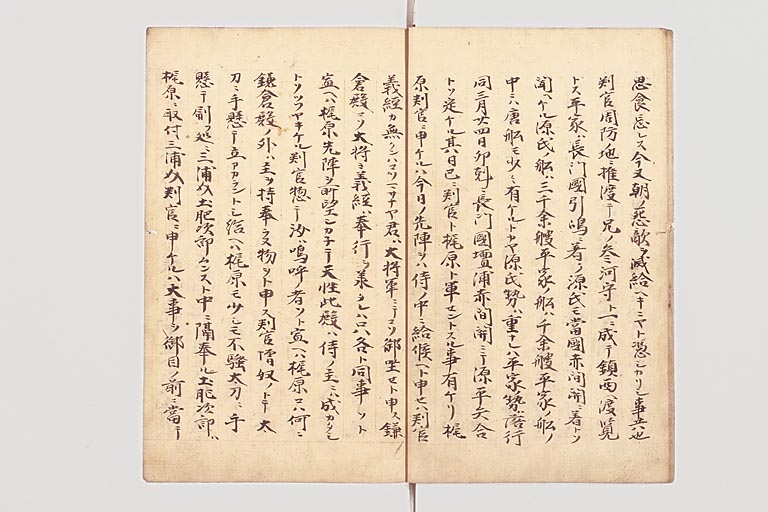 思食忘レス今又朝ノ怨敵ヲ滅給ヘキニヤト憑シカリシ事共也
判官周防地ニ推渡テ兄ノ参河守ト一ニ成テ鎮西ヘ渡覧
トス平家ハ長門國引嶋ニ着ク源氏モ當國赤間関ニ着トソ
聞ヘケル源氏ノ船ハ三千余艘平家ノ船ハ千余艘平家ノ船ノ
中ニハ唐船モ少々有ケルトカヤ源氏ノ勢ハ重ナレハ平家ノ勢ハ落行
同三月廿四日卯剋ニ長門國壇浦赤間関ニテ源平矢合
トソ定ケル其日已ニ判官ト梶原ト軍セントスル事有ケリ梶
原判官ニ申ケルハ今日ノ先陣ヲハ侍ノ中ニ給候ヘト申セハ判官
義經カ無クハコソマサナヤ君ハ大将軍ニテコソ御坐セト申ス鎌
倉殿コソ大将ヨ義經ハ奉行ヲ承タレハ只各ト同事ソト
宣ヘハ梶原先陣ヲ所望シカネテ天性此殿ハ侍ノ主ニハ成カタシ
トソツフヤキケル判官惣テ汝ハ嗚呼ノ者ソト宣ヘハ梶原コハ何ニ
鎌倉殿ノ外ハ主ヲ持奉ラヌ物ヲト申ス判官憎奴ノトテ大
刀ニ手懸テ立アカラントシ給ヘハ梶原モ少シモ不騒太刀ニ手
懸テ刷ヒ処ニ三浦介土肥次郎ムンスト中ニ隔奉ル土肥次郎ハ
梶原ニ取付三浦介判官ニ申ケルハ大事ヲ御目ノ前ニ當テ